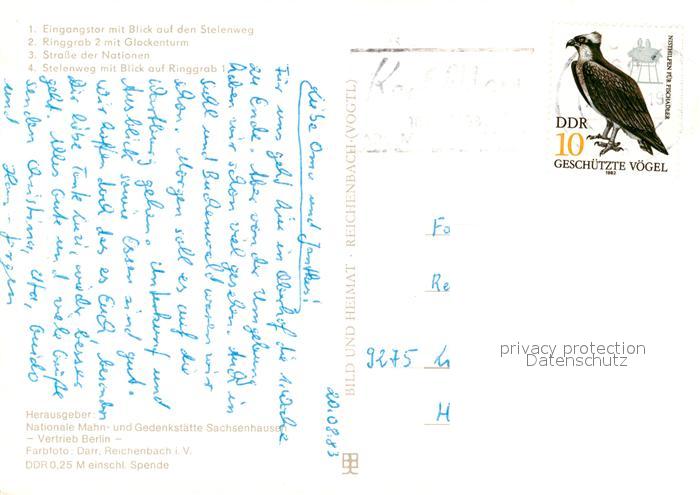 1. Eingangstor mit Blick auf den Stelenweg
2. Ringgrab 2 mit Glockenturm
3. Straße der Nationen
4. Stelenweg mit Blick auf Ringgrab 1
Liebe Oma und
Für uns geht hier in Oberhof die 1. Woche
zu Ende. Aber von der Umgebung
haben wir schon viel gesehen. Auch in
Suhl und Buchenwald waren wir
schon. Morgen soll es auf die
Wartburg gehen. Unterkunft und
Ausblick sowie Essen sind gut.
Wir hoffen doch das es Euch besonders
Dir liebe Tante wieder besser
geht. Alles Gute und viele Grüße
senden Christina, Guido
und Hans-Jürgen
20.08.83
Herausgeber:
Nationale Mahn- und Gedenkstätte Sachsenhausen
– Vertrieb Berlin –
Farbfoto: Darr, Reichenbach i. V.
DDR 0,25 M einschl. Spende
BILD UND HEIMAT · REICHENBACH (VOGTL)
NISTHILFEN FÜR FISCHADLER
DDR
10
GESCHÜTZTE VÖGEL
1982
Fo
Re
9275 L
H
privacy protection
Datenschutz